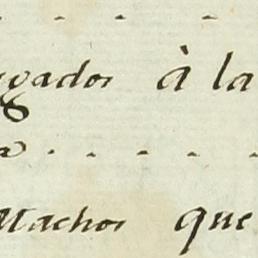 gados à la
Machos que